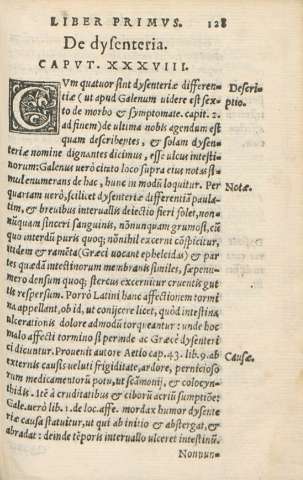 LIBER PRIMVS. 128
De dysenteria.
CAPVT. XXXVIII.
CVm quatuor sint dysenteriæ differen-
tiæ (ut apud Galenum uidere est sex-
to de morbo & symptomate. capit. 2.
ad finem) de ultima nobis agendum est
quam describentes, & solam dysen-
teriæ nomine dignantes dicimus, esse ulcus intesti-
norum: Galenus uerò citato loco supra eius notas si-
mul enumerans de hac, hunc in modū loquitur. Per
quartam uerò, scilicet dysenteriæ differentiā, paula-
tim, & breuibus interuallis deiectio fieri solet, non-
nūquam sinceri sanguinis, nōnunquam grumosi, cū
quo interdū puris quoq; nōnihil excerni cōspicitur,
itidem & raméta (Græci uocant epheleidas) & par
tes quædā intestinorum membranis similes, sæpenu-
mero densum quoq; stercus excernitur cruentis gut
tis respersum. Porrò Latini hanc affectionem tormi
na appellant, ob id, ut conijcere licet, quòd intestina
ulcerationis dolore admodū torqueantur: unde hoc
malo affecti tormino si perinde ac Græcè dysenteri
ci dicuntur. Prouenit autore Aetio cap. 43. lib. 9. ab
externis causis ueluti frigiditate, ardore, pernicioso
rum medicamentorū potu, ut scāmonij, & colocyn-
thidis. Itē à cruditatibus & ciborū acriū sumptiōe:
Gale. uerò lib. 1. de loc. affe. mordax humor dysente
riæ causa statuitur, ut qui ab initio & abstergat, &
abradat: deinde tēporis interuallo ulceret intestinū.
Nonnun-
Descri-
ptio.
Notæ.
Causæ.